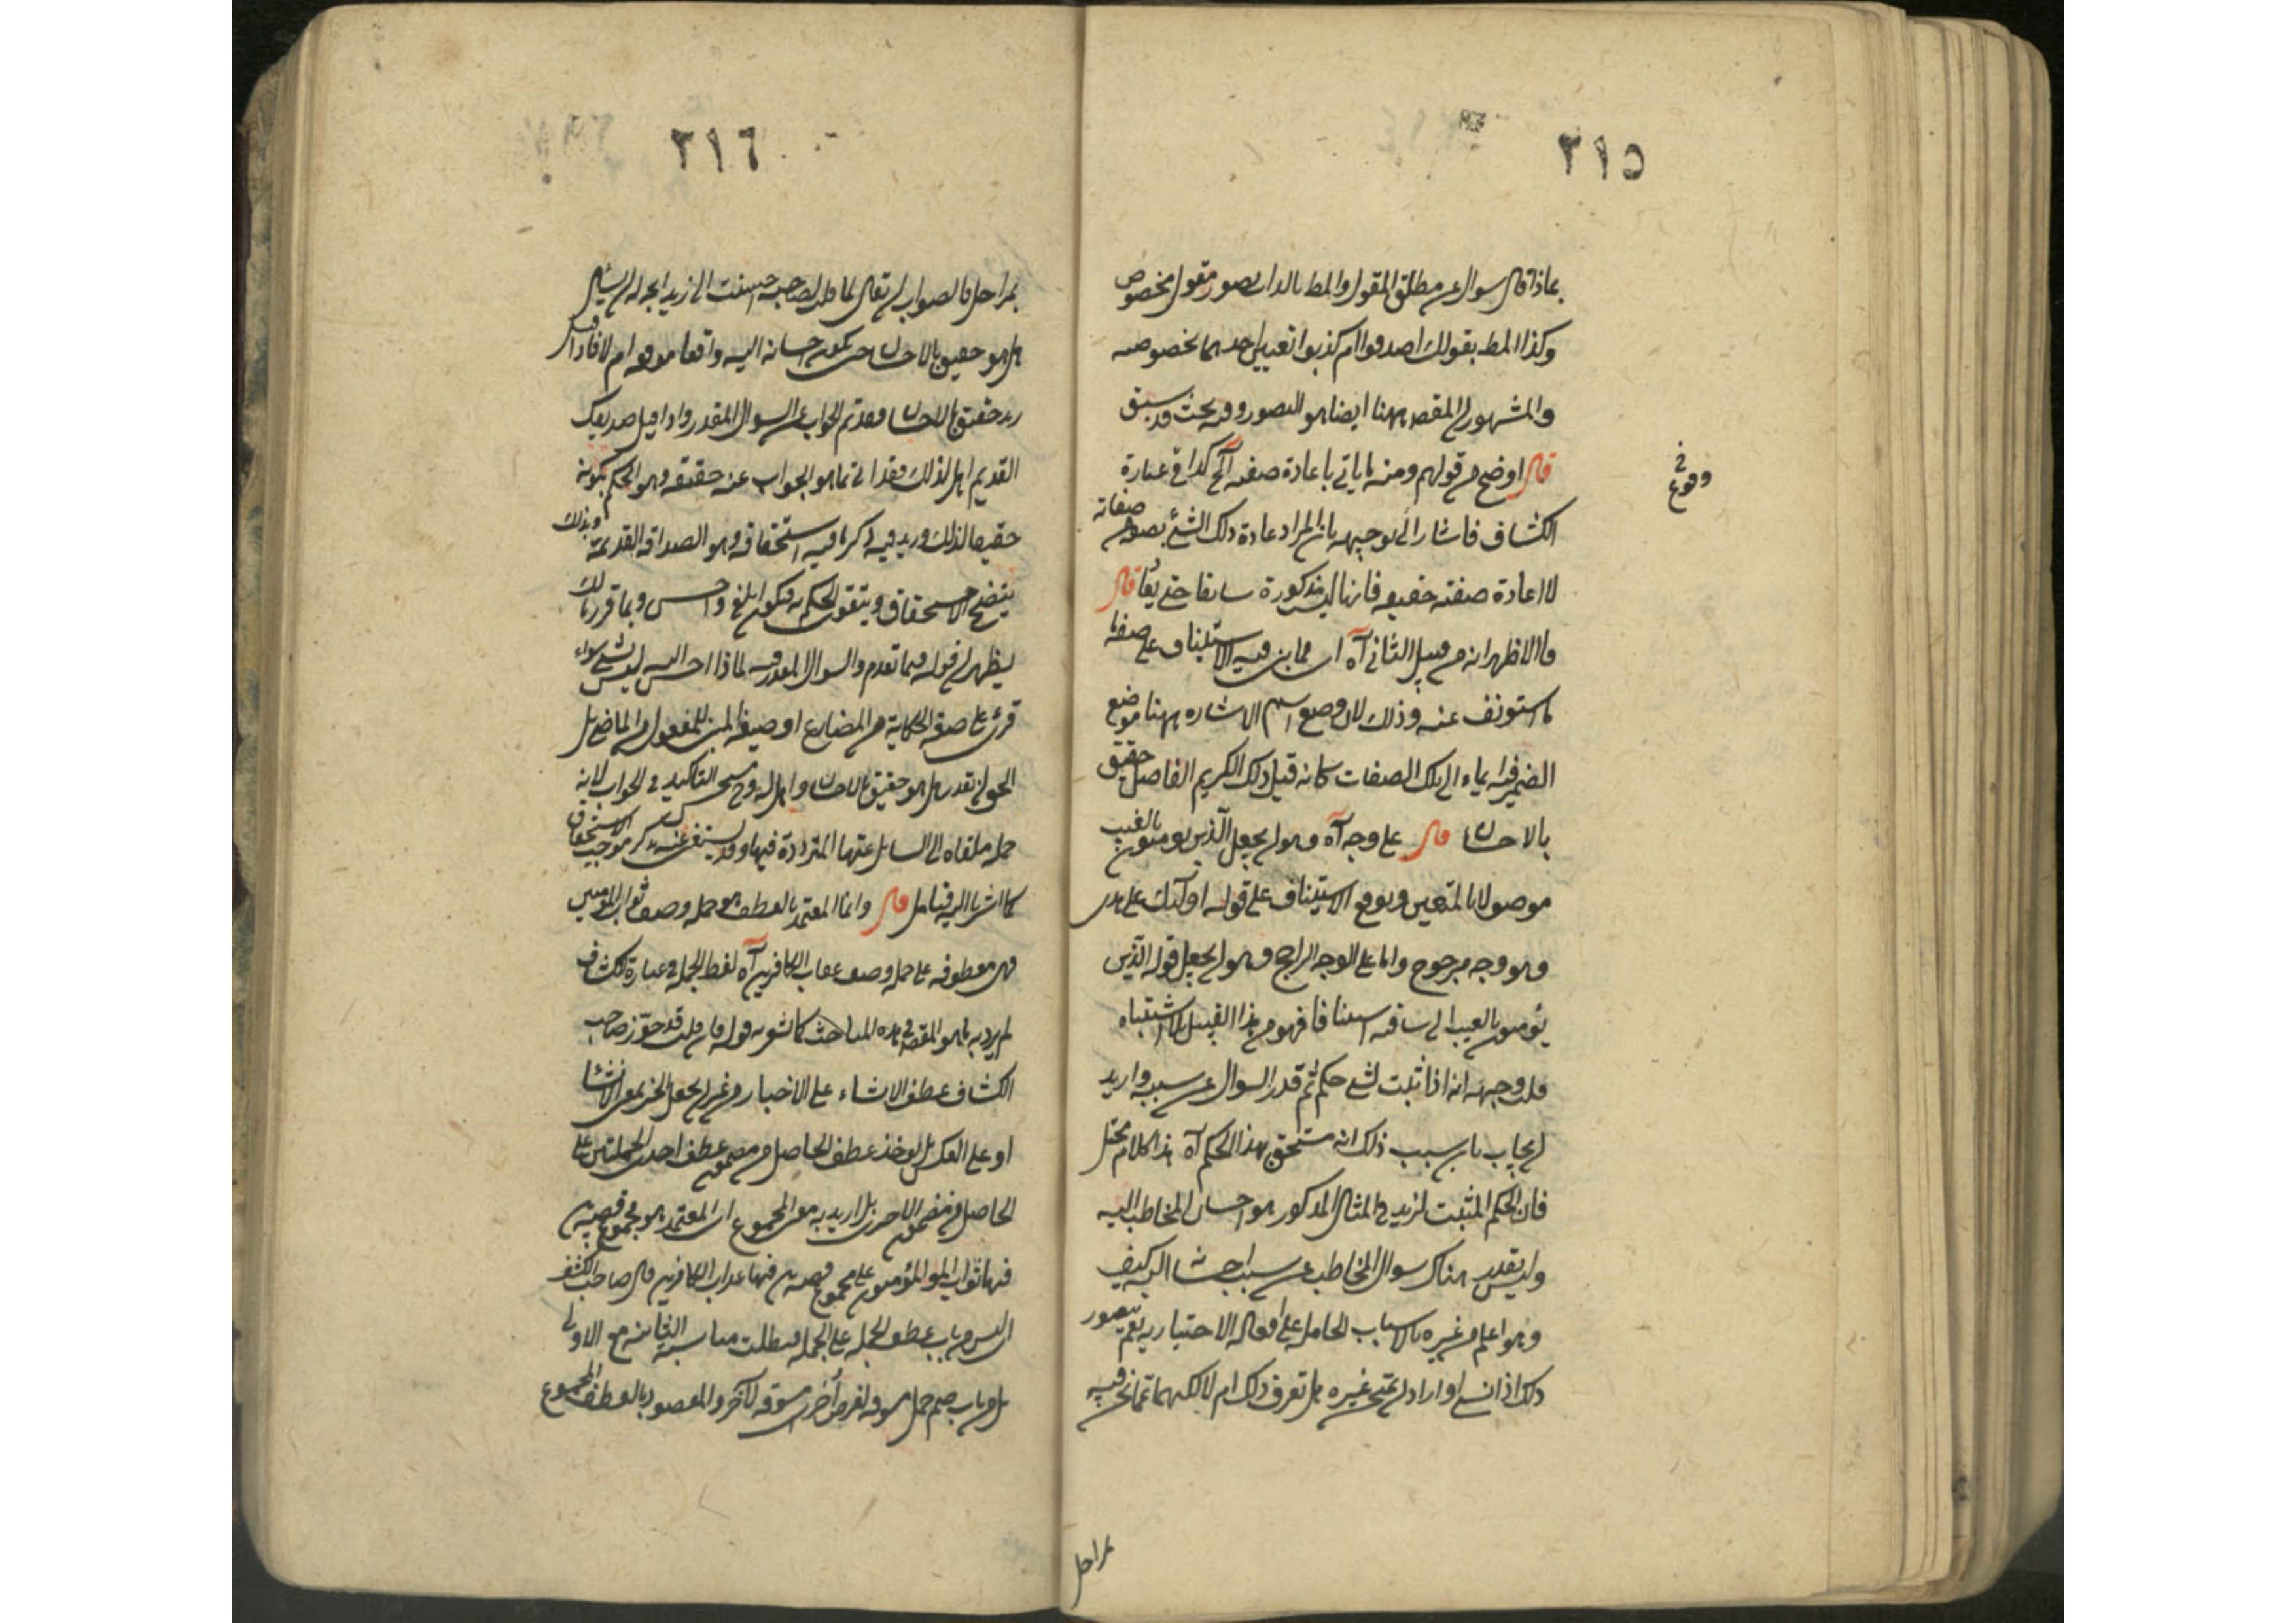 ٣١٥
بماذا قال سوال عن مطلق المقول والمط بالذات تصور مقول مخصوص
وكذا المط بقولك اصدقوا ام كذبوا تعيين احدهما بخصوصه
والمشهور ان المقصـ ههنا ايضا هو التصور وفيه بحث قد سبق
قال اوضح من قولهم ومنه ما ياتى باعادة صفته آلخ كذا فى عبارة
وقوع فى
الكشاف فاشار الى توجيهه بان المراد عادة ذلك الشئ بصوص صفاته
لا اعادة صفته حقيقه فانها ليس مذكورة سابقا حتى يقا قال
فالاظهر انه من قبيل الثانى آه اى مما بنى فيه الاستيناف على صفة
ما استونف عنه وذلك لان وضع اسم الاشاره ههنا موضع
الضمير فيه ايماء الى تلك الصفات كانه قيل ذلك الكريم الفاضل حقيق
بالاحسان قال على وجه آه وهو ان يجعل الذين يومنون بالغيب
موصولا بالمتقين ويوقع الاستيناف على قوله اولئك على هدى
وهو وجه مرجوح واما على الوجه الراجح وهو ان يجعل قوله الذين
يؤمنون بالغيب الى ساقته استينافا فهو من هذا القبيل بلا اشتباه
قلت وجهه انه اذا ثبت لشئ حكم ثم قدر السوال عن سببه واريد
ان يجاب بان سبب ذلك انه مستحق بهذا الحكم آه هذا الكلام مختل
فان الحكم المثبت لزيد فى المثال المذكور هو احسان المخاطب اليه
وليس يقدر هناك سوال المخاطب عن سبب احسانه اليه كيف
وهو اعلم من غيره بالاسباب الحاملة على افعاله الاختياريه نعم يتصور
ذلك اذا نسى او اراد ان يمتحن غيره هل تعرف ذلك ام لا لكنهما مما نحن فيه
بمراحل
٣١٦
بمراحل فالصواب ان يقال لما قيل لصاحبه احسنت الى زيد اتجه له ان يسئل
هل هو حقيق بالاحسان حتى يكون احسانه اليه واقعا موقعه ام لا فاذا قيل
زيد حقيق بالاحسان فقد تم الجواب عن السوال المقدر واذا قيل صديقك
القديم اهل لذلك فقد اتى بما هو الجواب عنه حقيقه وهو الحكم بكونه
حقيقا لذلك وزيد فيه ذكر ما فيه استحقاقه وهو الصداقه القديمة وبذلك
يتضح الاستحقاق ويتقوى الحكم به فيكون ابلغ واحسن وبما قررنا لك
يظهر ان قوله فيما تقدم والسوال المقدر فيه لماذا احسن اليه ليس بشئ سواء
قرئ على صيغة الحكاية من المضارع او صيغة المبنى للمفعول من الماضى بل
الحق ان يقدر هل هو حقيق بالاحسان واهل له وح يستحسن التاكيد فى الجواب لانه
جملة ملقاه الى السايل عنها المتردد فيها وقد يستغنى عنه بذكر موجب الاستحقاق
كما اشرنا اليه فتامل قال وانما المعتمد بالعطف هو جملة وصف ثواب المومنين
فهى معطوفه على جملة وصف عقاب الكافرين آه لفظ الجملة فى عبارة الكشاف
لم يرد به ما هو المقصـ فى هذه المباحث كما يشعر به قوله فان قلت قد جوّز صاحب
الكشاف عطف الانشاء على الاخبار من غير ان يجعل الخبر بمعنى الانشاء
او على العكس بل يوخذ عطف الحاصل من مضمون احدى الجملتين على
الحاصل من مضمون الاخرى بل اريد به معنى المجموع اى المعتمد هو مجموع قصة بين
فيها ثواب المؤمنين على مجموع قصة بين فيها عذاب الكافرين قال صاحب الكشف
اى ليس من باب عطف الجملة على الجملة فيطلب مناسبة الثانية مع الاولى
بل من باب ضم جمل مسوقة لغرض الى اخرى مسوقة لآخر والمقصود بالعطف المجموع